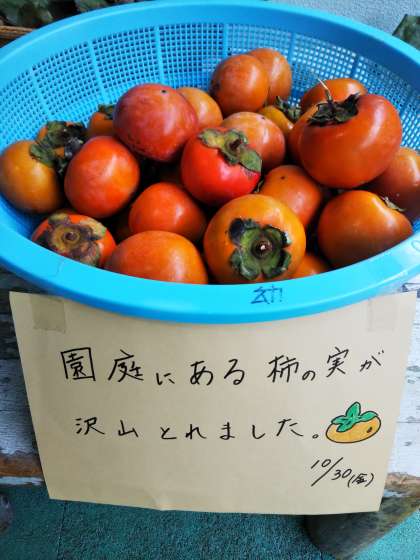 幼
園庭にある柿の実が
沢山とれました。
10/30(金)